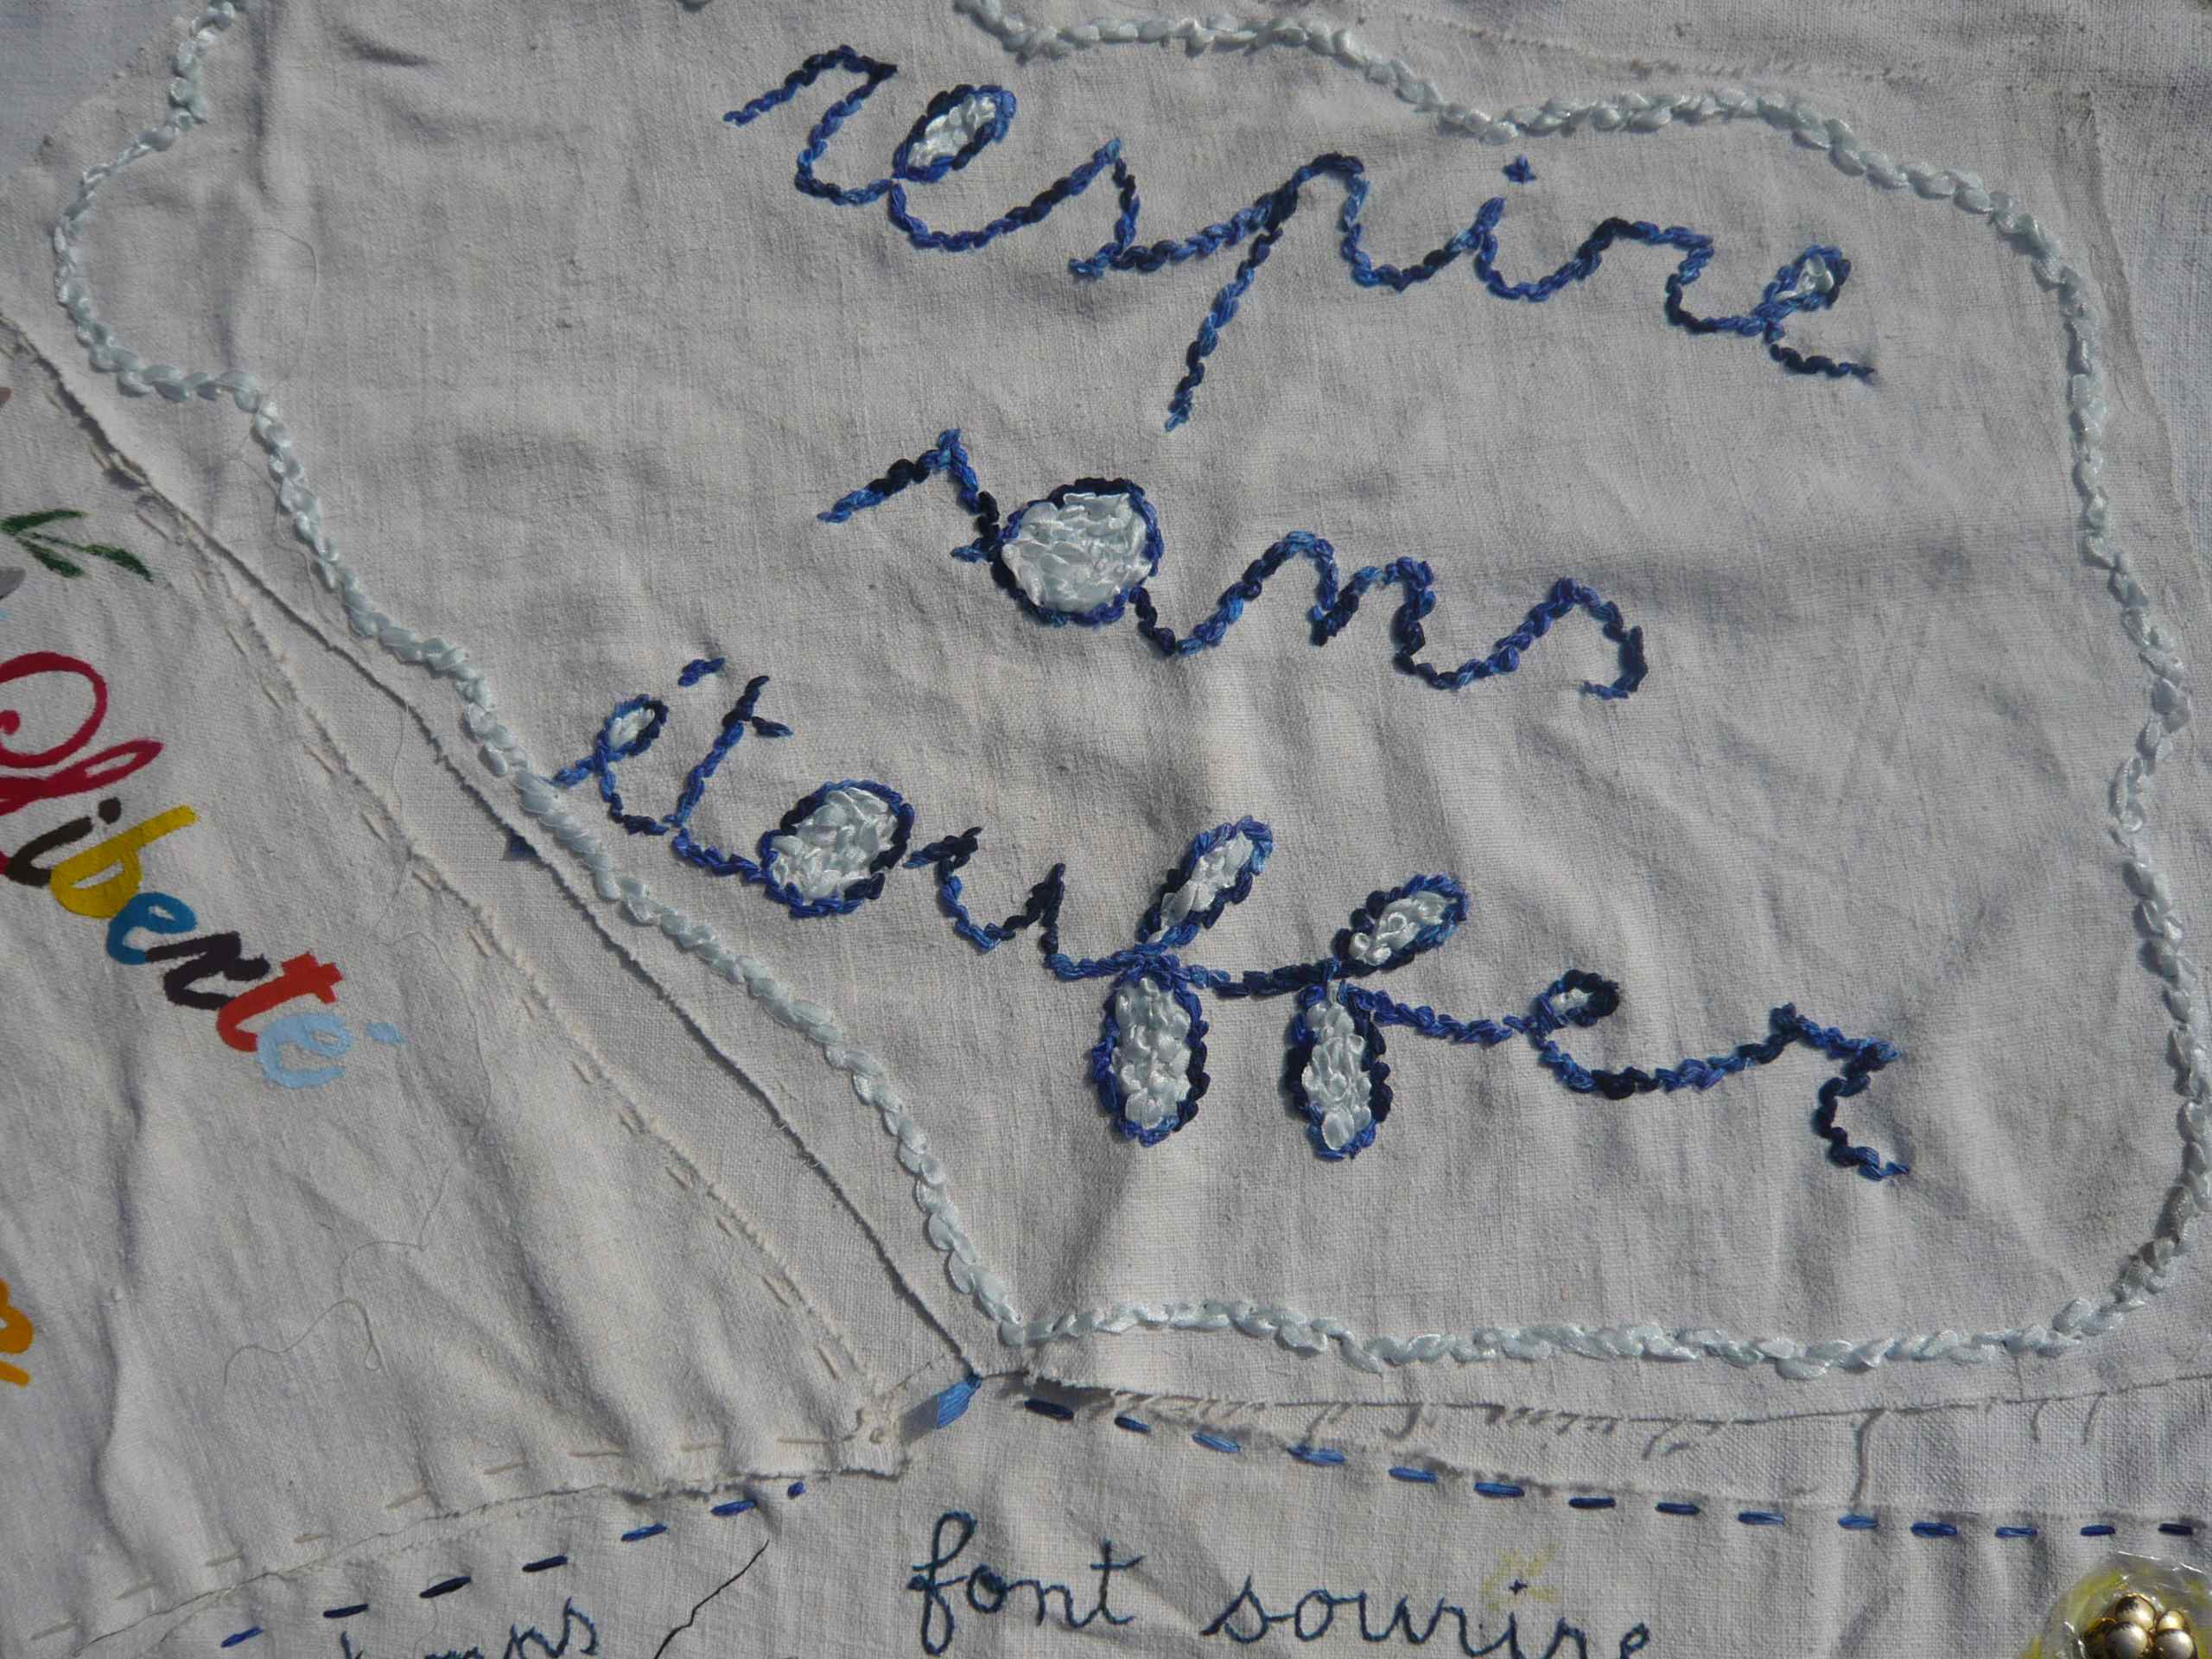 respire
sans
étouffer
Liberté
font sourire